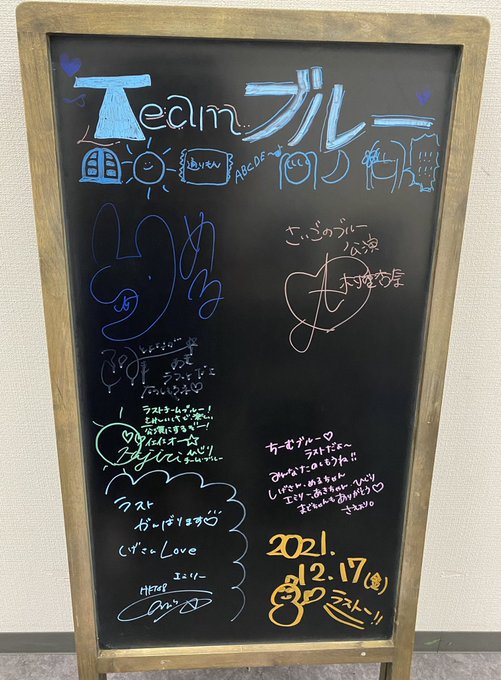 Teamブルー
通りもん
ABCDE
める
さいごのブルー
公演
ラストチームブルー!
公演にするぞー!
イェイオー☆
ひじり
チームブルー
ラスト
がんばります♡
しげさんLove
エミリー
HKT48
ちーむブルー♡
ラストだよ〜
みんなたのしもうね!!
しげさん、めるちゃん
エミリー、あきちゃん、ひじり
まどちゃんもありがとう♡
さえより。
2021.
12.17(金)
ラストー!!